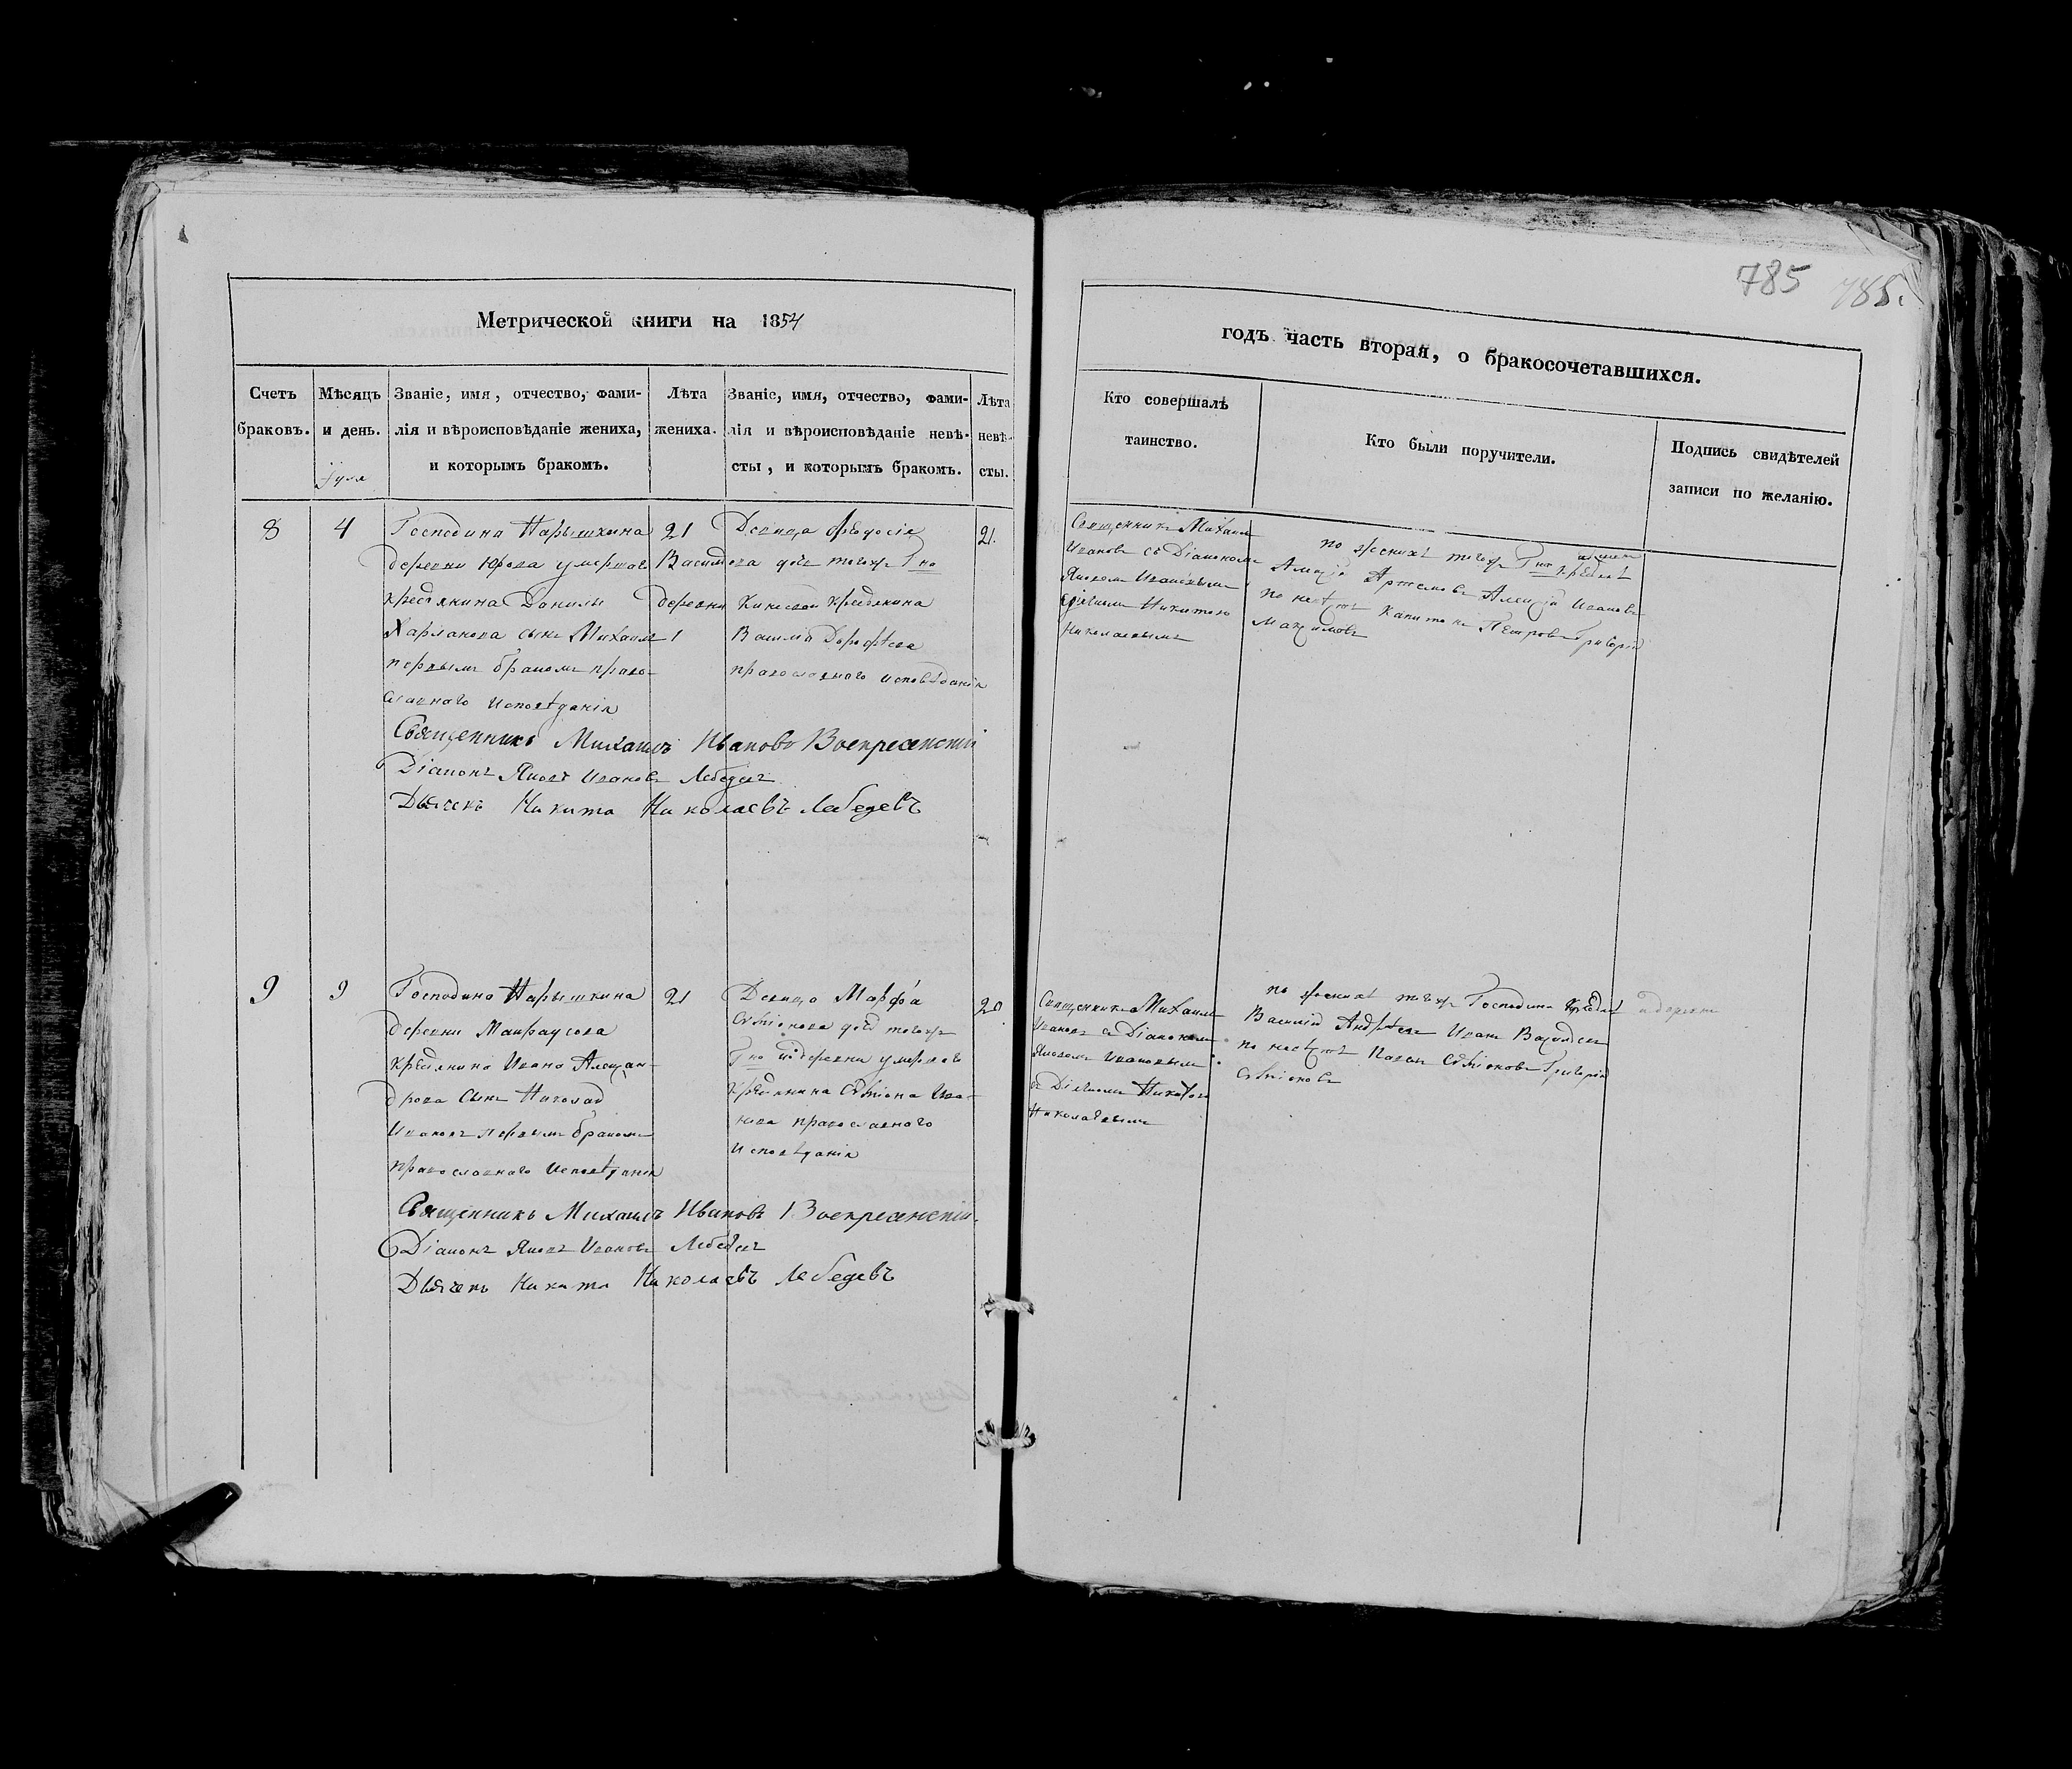 785 785.
Метрической книги на 1854
годъ часть вторая, о бракосочетавшихся.
Счетъ браковъ.
Мѣсяцъ и день.
Іуля
Званіе, имя, отчество, фами-
лія и вѣроисповѣданіе жениха,
и которымъ бракомъ.
Лѣта
жениха.
Званіе, имя, отчество, фами-
лія и вѣроисповѣданіе невѣ-
сты, и которымъ бракомъ.
Лѣта
невѣ-
сты.
Кто совершалъ
таинство.
Кто были поручители.
Подпись свидѣтелей
записи по желанію.
8
4
Господина Нарышкина
деревни Юрова умершаго
крестьянина Данилы
Харланова сынъ Михаилъ
первымъ бракомъ право-
славнаго исповѣданія
21
Девица Федосія
Василова дочь тогожъ Гна
деревни крестьянина
Василія Дорофѣева
православнаго исповѣданія
21.
Священникъ Михаилъ
Ивановъ съ Діакономъ
Яковомъ Ивановымъ
Никитою
Николаевымъ
по женихѣ тогожъ Гна
Артемовъ Алексѣй Ивановъ
по невѣстѣ Капитонъ Петровъ Григорій
Максимовъ
Священникъ Михаилъ Ивановъ Воскресенскій
Діаконъ Яковъ Ивановъ Лебедевъ
Дьячекъ Никита Николаевъ Лебедевъ
9
9
Господина Нарышкина
деревни
крестьянина Ивана Алексан-
дрова сынъ Николай
Ивановъ первымъ бракомъ
православнаго исповѣданія
21
Девица Марфа
Сѵміонова дочь тогожъ
Гна деревни умершаго
крестьянина Сѵміона Ива-
нова православнаго
исповѣданія
20
Священникъ Михаилъ
Ивановъ съ Діакономъ
Яковомъ Ивановымъ
Никитою
Николаевымъ
по женихѣ тогожъ Господина
Василій Андрѣевъ Иванъ
по невѣстѣ Сѵміоновъ Григорій
Сѵміоновъ
Священникъ Михаилъ Ивановъ Воскресенскій.
Діаконъ Яковъ Ивановъ Лебедевъ
Дьячекъ Никита Николаевъ Лебедевъ